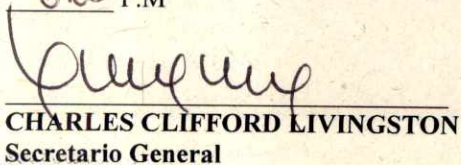 P.M
CHARLES CLIFFORD LIVINGSTON
Secretario General